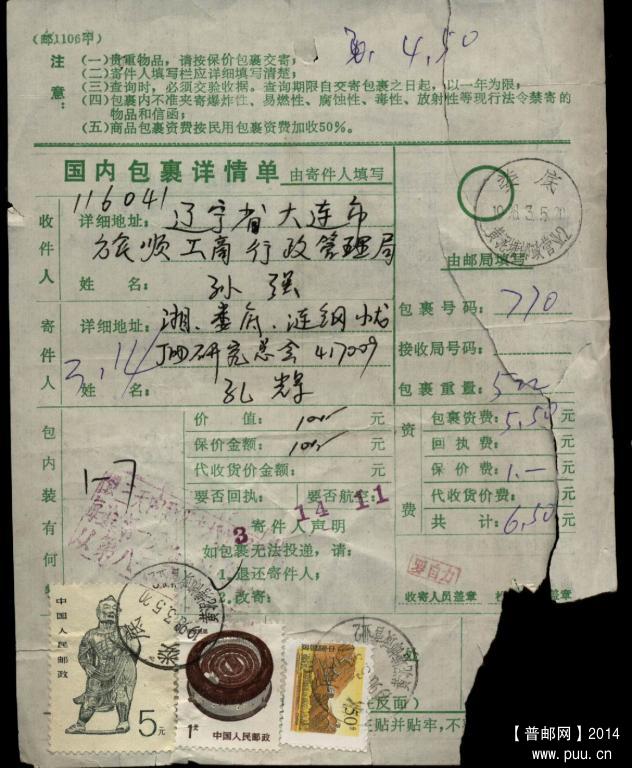 （邮1106甲） 4.50
注意：
（一）贵重物品，请按保价包裹交寄；
（二）寄件人填写栏应详细填写清楚；
（三）查询时，必须交验收据。查询期限自交寄包裹之日起，以一年为限；
（四）包裹内不准夹寄爆炸性、易燃性、腐蚀性、毒性、放射性等现行法令禁寄的
物品和信函；
（五）商品包裹资费按民用包裹资费加收50%。
国内包裹详情单 由寄件人填写
116041
收件人
详细地址：辽宁省大连市
顺工商行政管理局
姓名：孙强
寄件人
详细地址：湘.娄底.涟钢
研究总会 417009
姓名：孔辉
3.14
娄底
1998.3.5.20
由邮局填写
包裹号码：770
接收局号码：
包裹重量：
包内装有何
价值： 元
保价金额： 元
代收货价金额： 元
要否回执： 要否航空：
3 14 11
寄件人声明
如包裹无法投递，请：
1.退还寄件人；
2.改寄：
资费
包裹资费：5.50元
回执费： 元
保价费：1.—元
代收货价费： 元
共计：6.50元
收寄人员盖章
盖章
处
在反面）
贴并贴牢，不
中国人民邮政
5元
1元
中国人民邮政
50分
【普邮网】2014
www.puu.cn